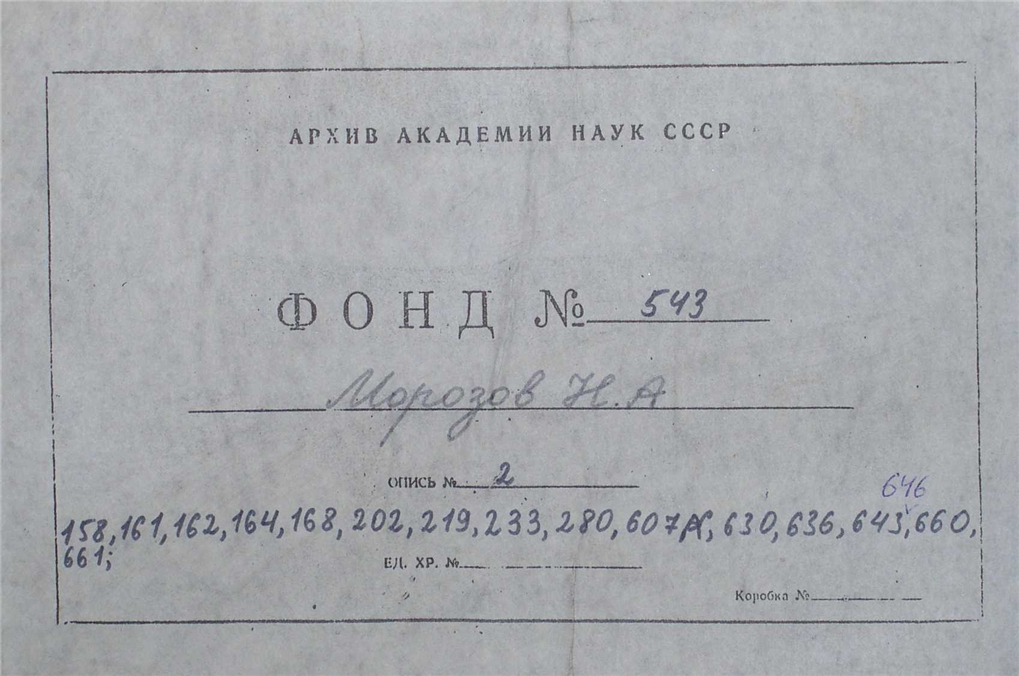 АРХИВ АКАДЕМИИ НАУК СССР
ФОНД № 543
Морозов Н.А
ОПИСЬ № 2
646
158, 161, 162, 164, 168, 202, 219, 233, 280, 607, 630, 636, 643, 660,
661;
ЕД. ХР. №
Коробка №